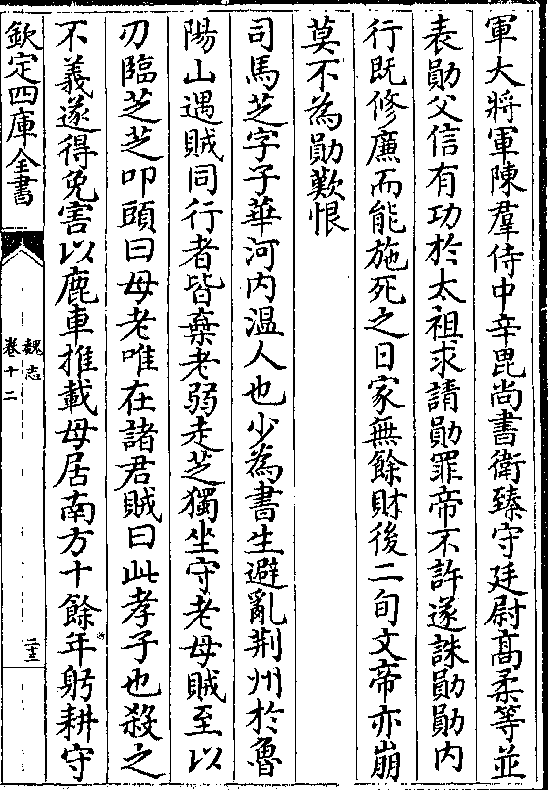 軍大將軍陳羣侍中辛毘尚書衛臻守廷尉髙柔等並
表勛父信有功於太祖求請勛罪帝不許遂誅勛勛内
行既修亷而能施死之日家無餘財後二旬文帝亦崩
莫不為勛歎恨
司馬芝字子華河内温人也少為書生避亂荆州於魯
陽山遇賊同行者皆棄老弱走芝獨坐守老母賊至以
刃臨芝芝叩頭曰母老唯在諸君賊曰此孝子也殺之
不義遂得免害以鹿車推載母居南方十餘年躬耕守
欽定四庫全書
魏志
卷十二
二十三